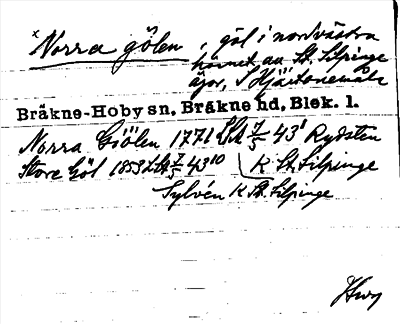 × Norra gölen, göl i nordvästra
hörnet av St. Silpinge
ägor, S Hjärtonemåla
Bräkne-Hoby sn, Bräkne hd, Blek. l.
Norra Giölen 1771 LSA 7/5 43¹ Rydsten
Store Göl 1853 LSA 7/5 43¹⁰ K St. Silpinge
Sylvén K St. Silpinge